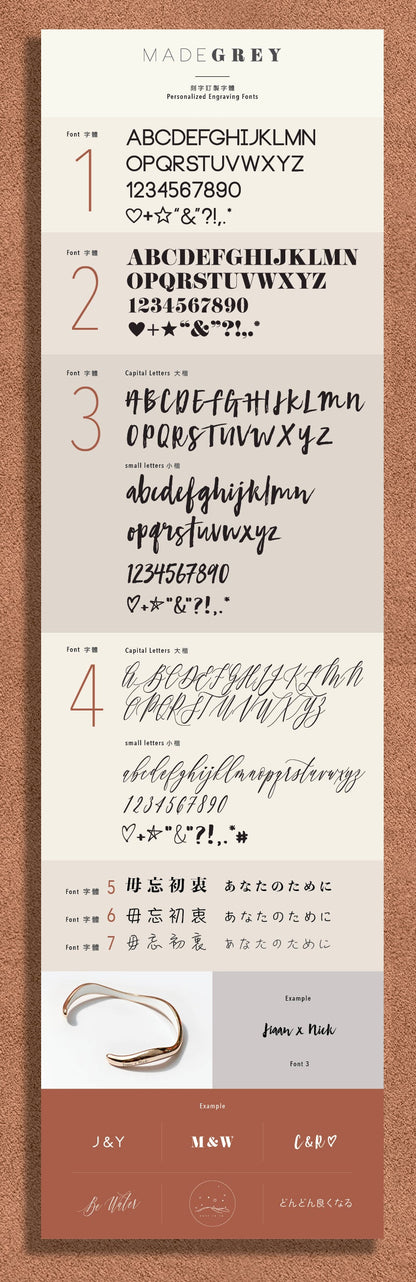 MADEGREY
刻字訂製字體
Personalized Engraving Fonts
Font 字體
1
ABCDEFGHIJKLMN
OPQRSTUVWXYZ
1234567890
♡+☆“&”?!,.*
Font 字體
2
ABCDEFGHIJKLMN
OPQRSTUVWXYZ
1234567890
♥+★“&”?!,.*
Font 字體
3
Capital Letters 大楷
ABCDEFGHIJKLMN
OPQRSTUVWXYZ
small letters 小楷
abcdefghijklmn
opqrstuvwxyz
1234567890
♡+☆“&”?!,.*
Font 字體
4
Capital Letters 大楷
ABCDEFGHIJKLMN
OPQRSTUVWXYZ
small letters 小楷
abcdefghijklmnopqrstuvwxyz
1234567890
♡+☆“&”?!,.*#
Font 字體 5 毋忘初衷 あなたのために
Font 字體 6 毋忘初衷 あなたのために
Font 字體 7 毋忘初衷 あなたのために
Example
x Nick
Font 3
Example
J&Y
M&W
C&R♡
Be Water
どんどん良くなる